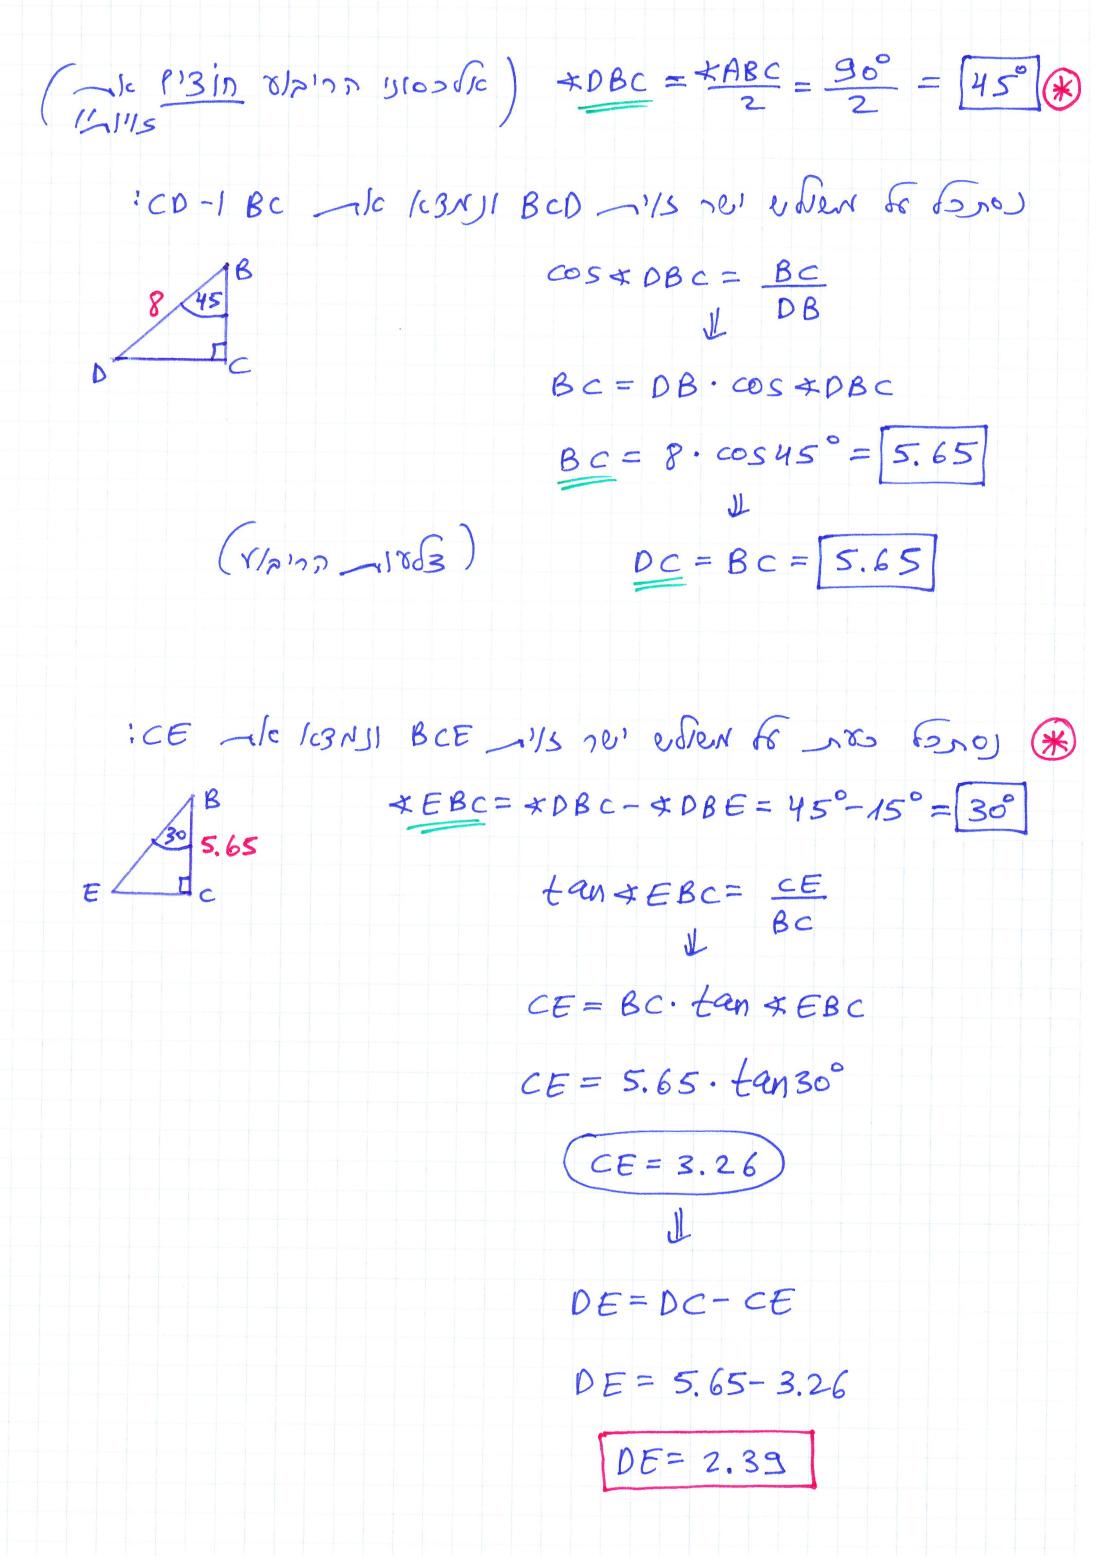 ∢DBC = ∢ABC/2 = 90°/2 = 45° (אלכסוני הריבוע חוצים את
זוויותיו)
נסתכל על משולש ישר זווית BCD ונמצא את BC ו-CD:
B
8
45
D
C
cos∢DBC = BC/DB
⇓
BC = DB · cos∢DBC
BC = 8 · cos45° = 5.65
⇓
DC = BC = 5.65 (צלעות הריבוע)
נסתכל כעת על משולש ישר זווית BCE ונמצא את CE:
B
30
5.65
E
C
∢EBC = ∢DBC - ∢DBE = 45° - 15° = 30°
tan∢EBC = CE/BC
⇓
CE = BC · tan∢EBC
CE = 5.65 · tan30°
CE = 3.26
⇓
DE = DC - CE
DE = 5.65 - 3.26
DE = 2.39